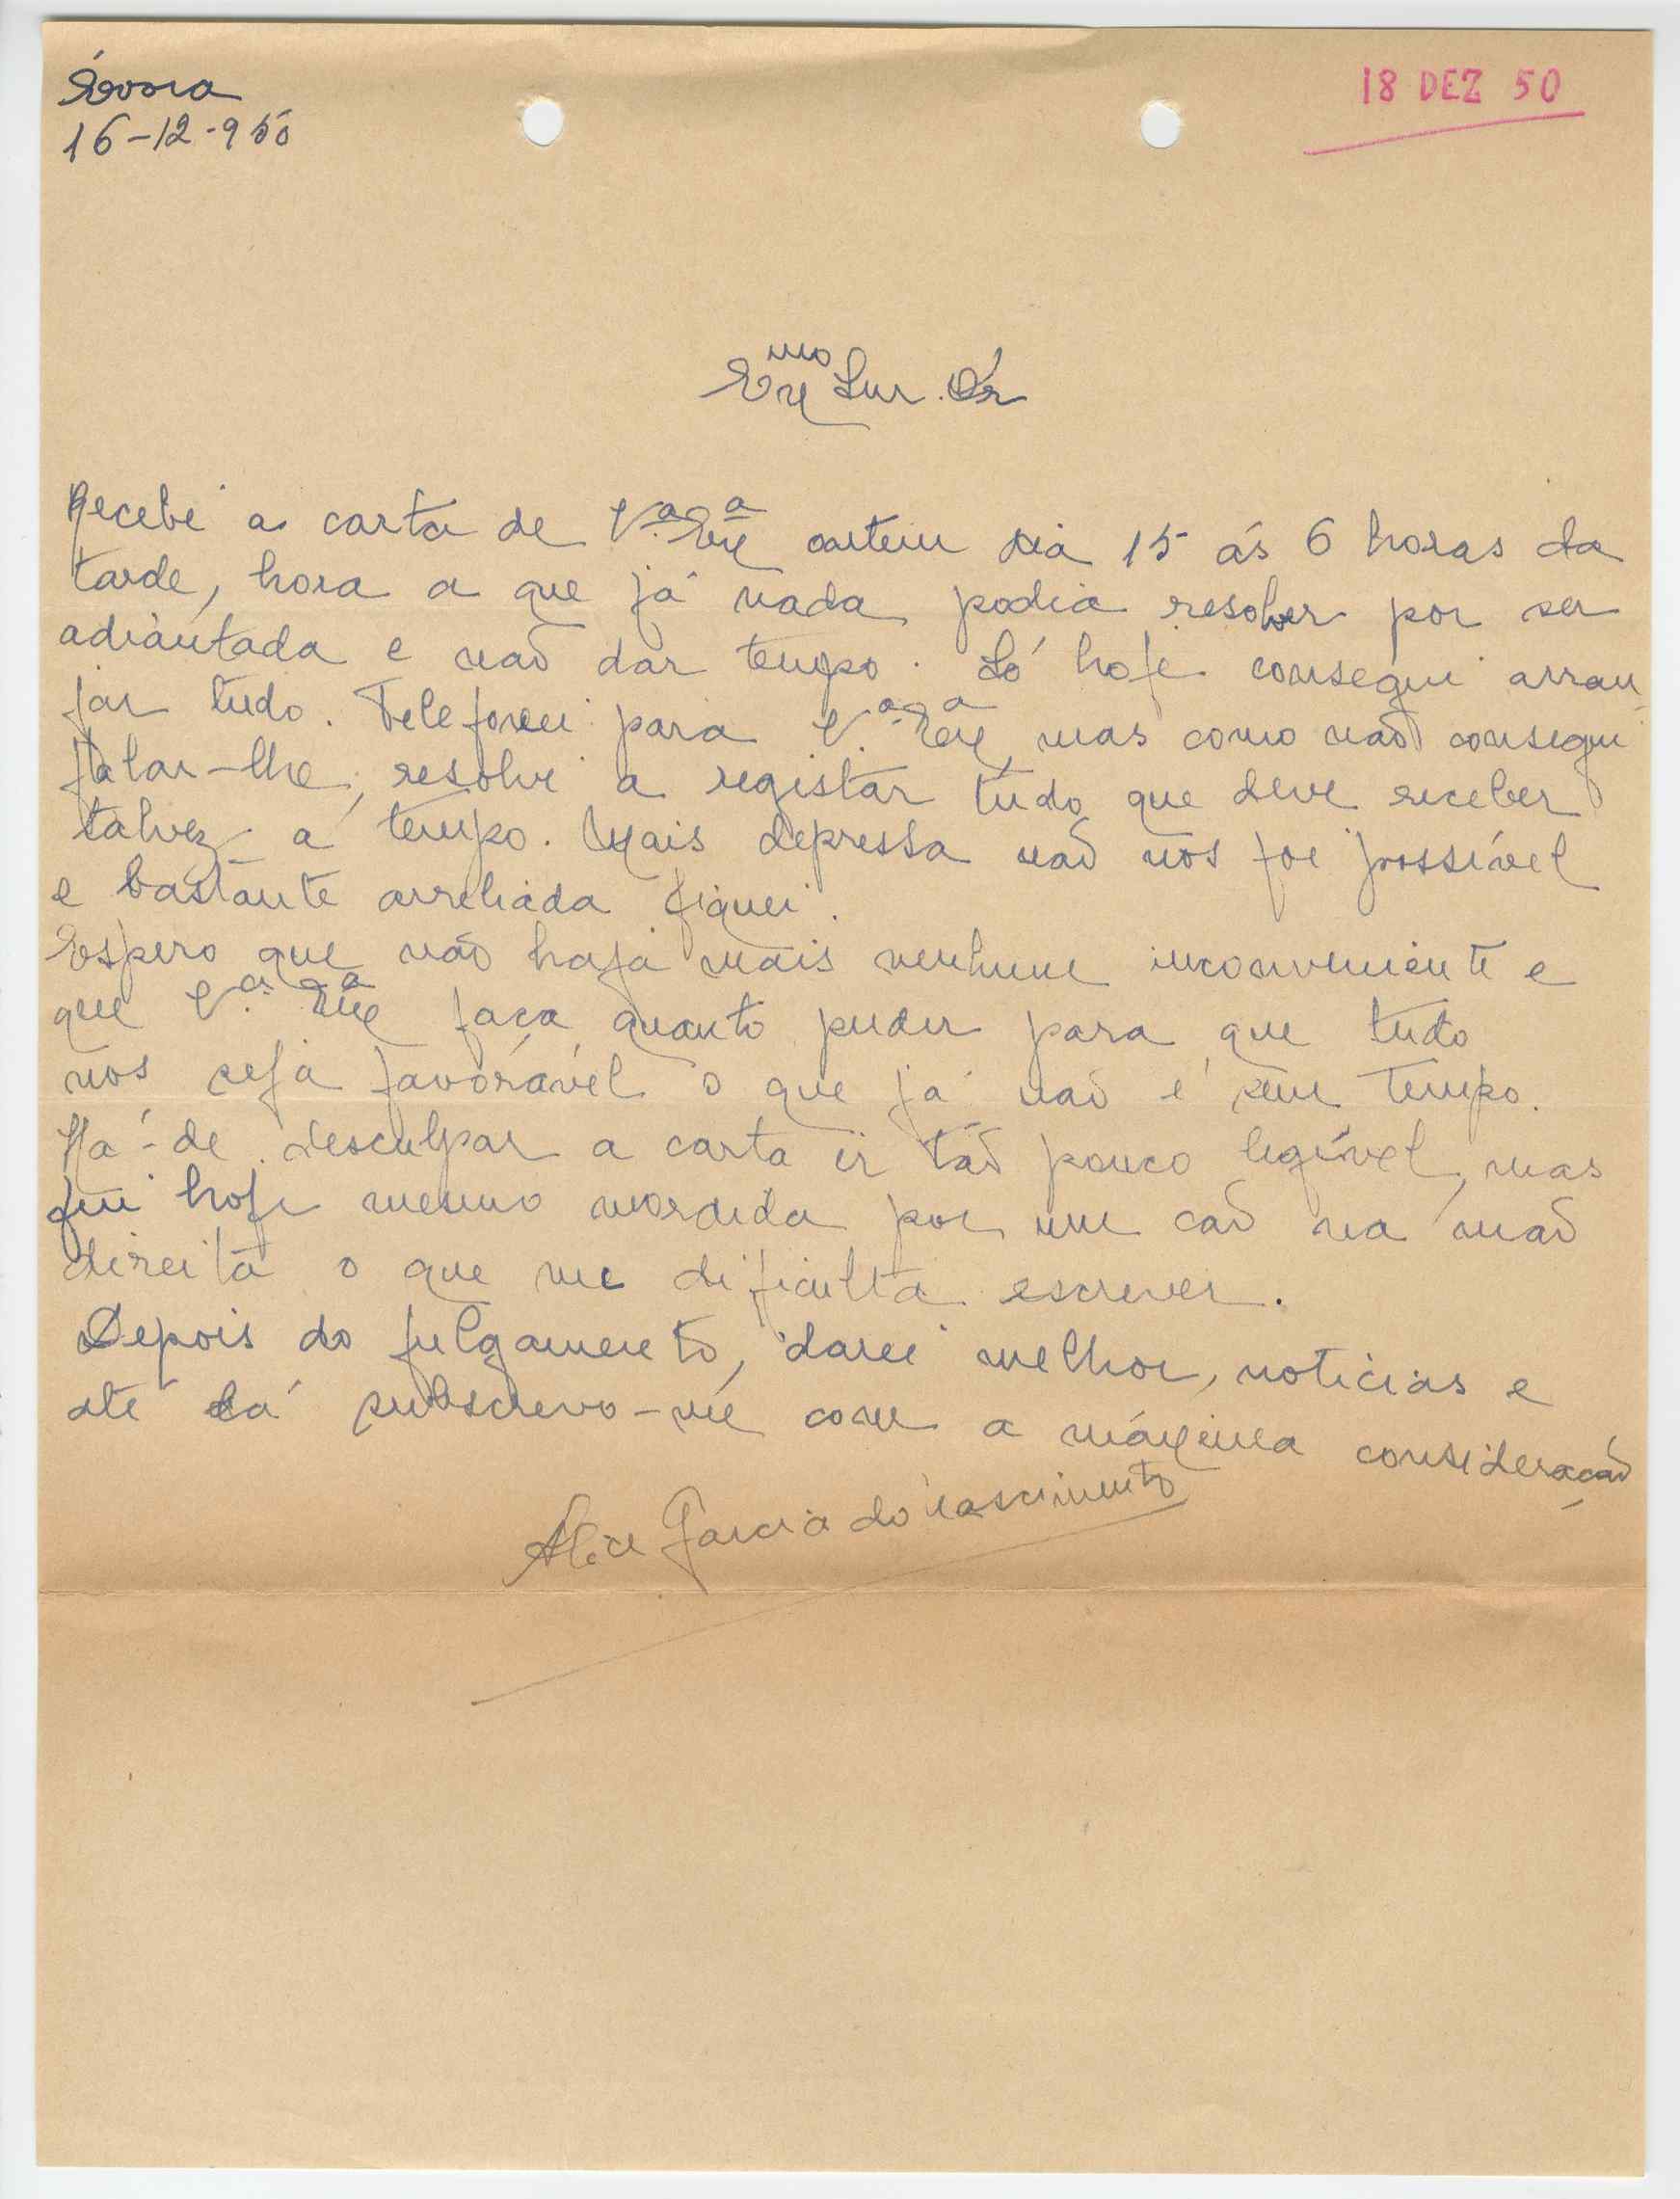 Évora
18 DEZ 50
16-12-950
Exmo Snr. Dr
Recebi a carta de V.ª Exª ontem dia 15 ás 6 horas da
tarde, hora a que já nada podia resolver por ser
adiantada e não dar tempo. Só hoje consegui arran-
jar tudo. Telefonei para V.ª Exª, mas como não consegui
falar-lhe, resolvi a registar tudo que deve receber
talvez a tempo. Mais depressa não nos foi possível
e bastante arreliada fiquei.
Espero que não haja mais nenhum inconveniente e
que V.ª Exª faça quanto puder para que tudo
nos seja favorável o que já não é sem tempo.
Há-de desculpar a carta ir tão pouco legível, mas
fui hoje mesmo mordida por um cão na mão
direita o que me dificulta escrever.
Depois do julgamento, darei melhor, noticias e
até lá subscrevo-me com a máxima consideração
Alice Garcia do Nascimento